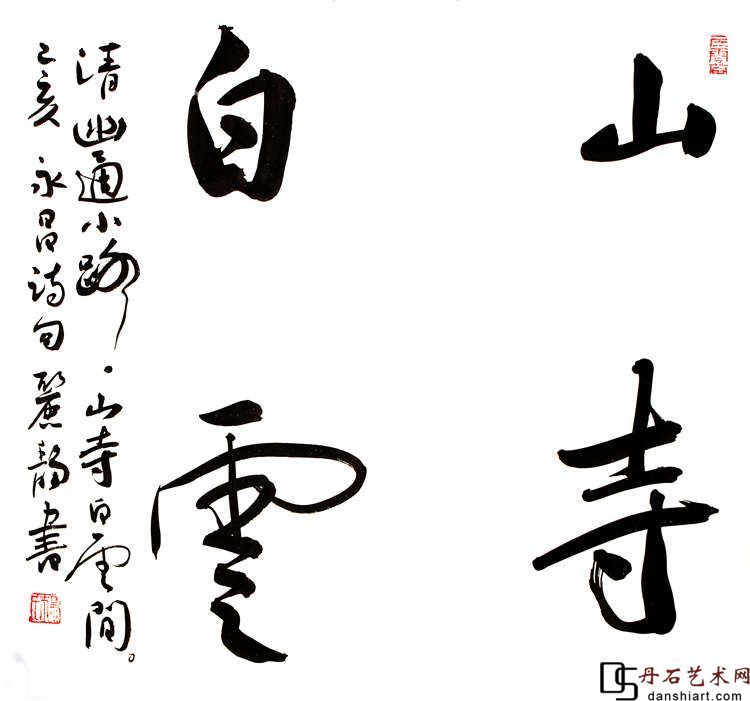 山寺
白雲
清幽通小路，山寺白雲間。
己亥 永昌詩句 麗静書
丹石艺术网
danshiart.com